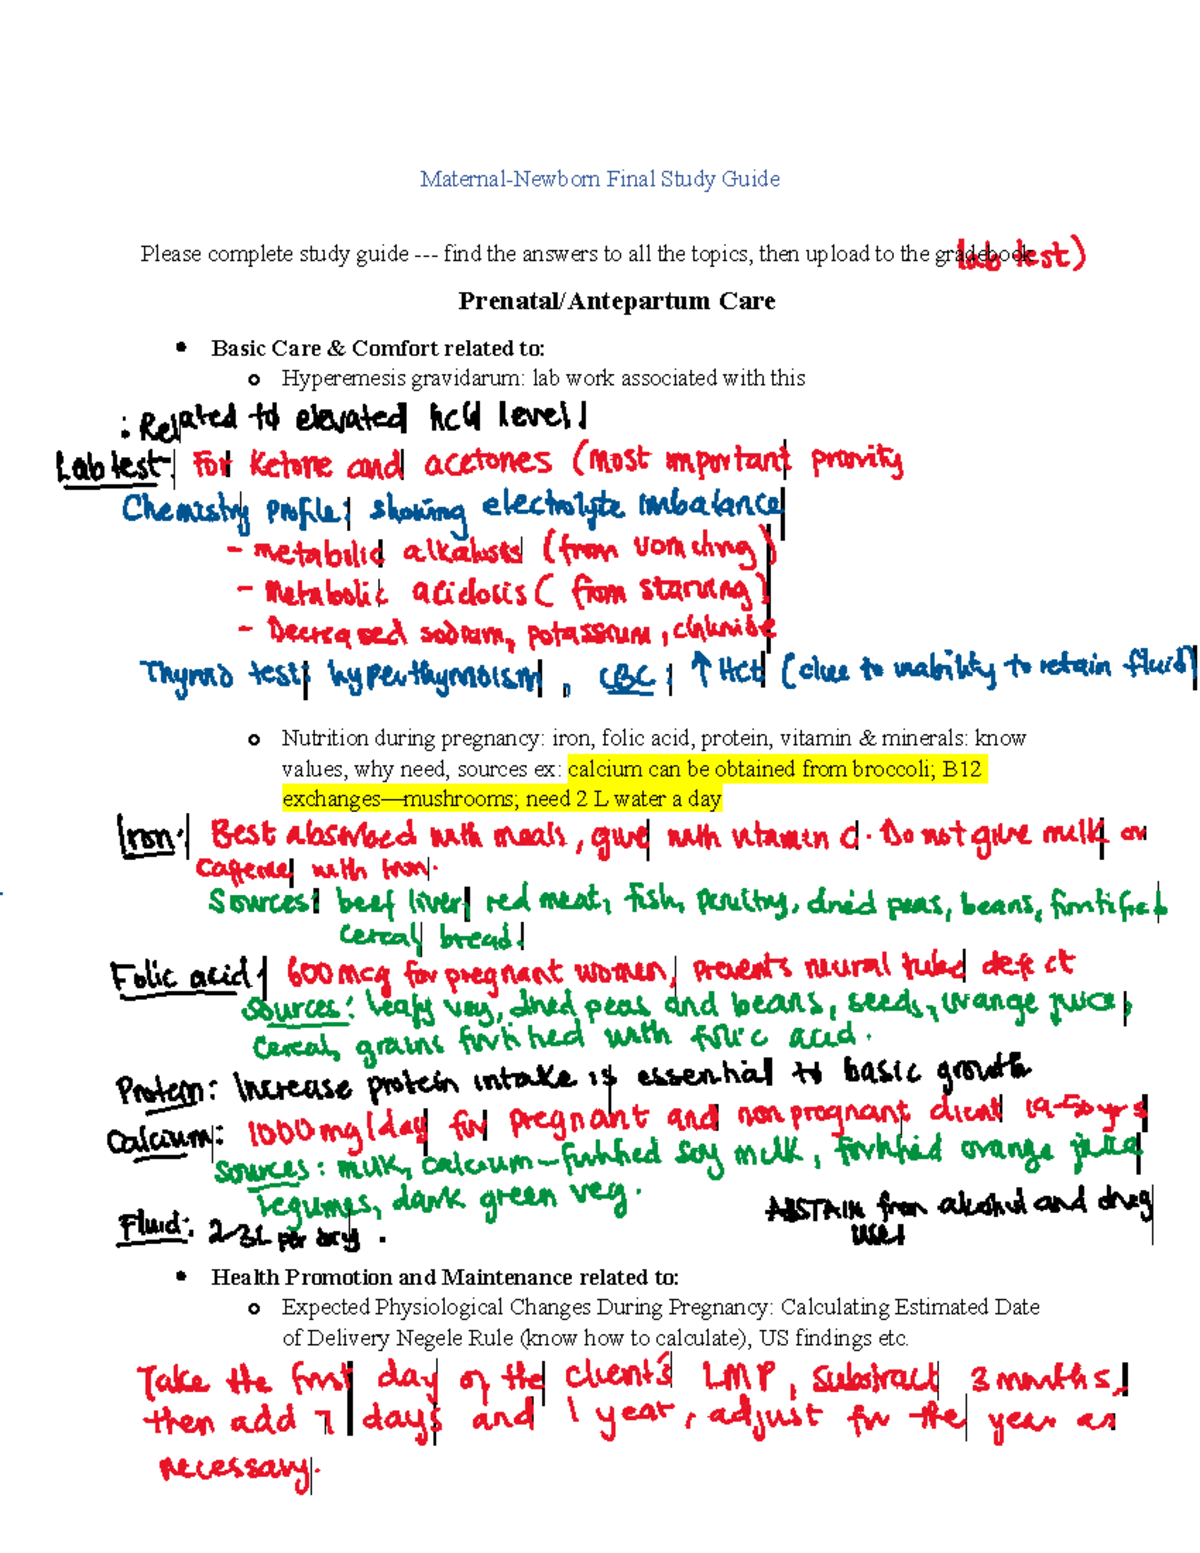 Maternal-Newborn Final Study Guide
Please complete study guide --- find the answers to all the topics, then upload to the gradebook
lab test)
Prenatal/Antepartum Care
• Basic Care & Comfort related to:
o Hyperemesis gravidarum: lab work associated with this
: Related to elevated hCG level
Lab test: For Ketone and acetones (most important priority
Chemistry profile: showing electrolyte imbalance
- metabolic alkalosis (from vomiting)
- Metabolic acidosis (from starving)
- Decreased sodium, potassium, chloride
Thyroid test: hyperthyroidism, CBC: ↑ Hct (due to inability to retain fluid)
o Nutrition during pregnancy: iron, folic acid, protein, vitamin & minerals: know
values, why need, sources ex: calcium can be obtained from broccoli; B12
exchanges—mushrooms; need 2 L water a day
Iron: Best absorbed with meals, give with vitamin C. Do not give milk or
caffeine with iron.
Sources: beef liver, red meat, fish, poultry, dried peas, beans, fortified
cereal, bread.
Folic acid: 600 mcg for pregnant women, prevents neural tube defect
Sources: leafy veg, dried peas and beans, seeds, orange juice,
Cereal, grains fortified with folic acid.
Protein: Increase protein intake is essential to basic growth
Calcium: 1000 mg/day for pregnant and nonpregnant client 19-50 yrs
Sources: milk, calcium-fortified soy milk, fortified orange juice
legumes, dark green veg.
Fluid: 2-3L per day.
ABSTAIN from alcohol and drug
use
• Health Promotion and Maintenance related to:
o Expected Physiological Changes During Pregnancy: Calculating Estimated Date
of Delivery Negele Rule (know how to calculate), US findings etc.
Take the first day of the client's LMP, substract 3 months,
then add 7 days and 1 year, adjust for the year as
necessary.